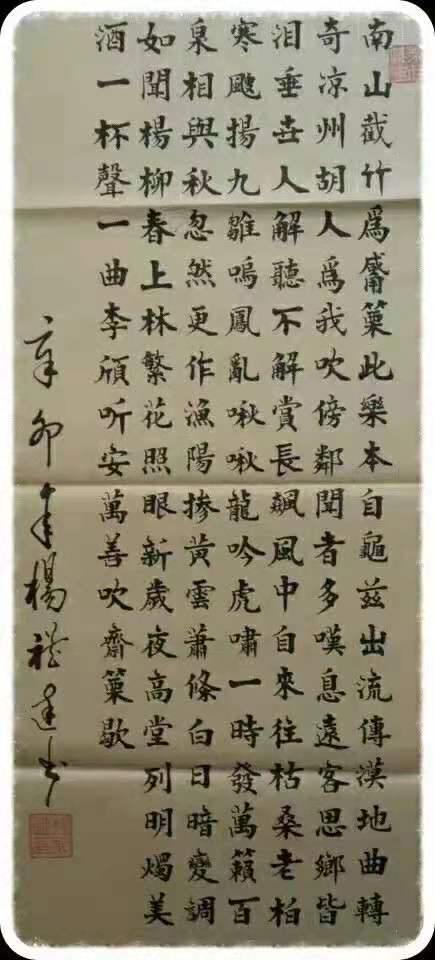 南山截竹爲觱篥此樂本自龜兹出流傳漢地曲轉
奇凉州胡人爲我吹傍鄰聞者多嘆息遠客思鄉皆
泪垂世人解聽不解賞長飆風中自來往枯桑老柏
寒飕揚九雛嗚鳳亂啾啾龍吟虎嘯一時發萬籟百
泉相與秋忽然更作漁陽掺黃雲蕭條白日暗變調
如聞楊柳春上林繁花照眼新歲夜高堂列明燭美
酒一杯聲一曲李頎听安萬善吹齋篥歇
辛卯年楊禮達书